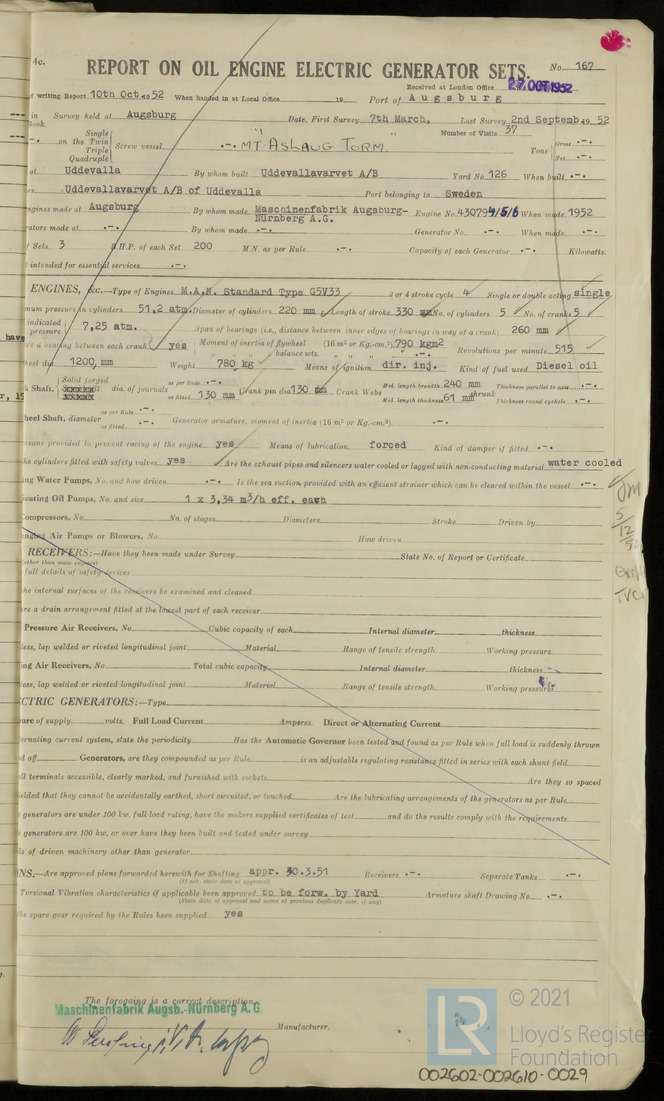 4c.
REPORT ON OIL ENGINE ELECTRIC GENERATOR SETS. No 167
Received at London Office 27 OCT 1952
of writing Report 10th Oct. 19 52 When handed in at Local Office 19 Port of Augsburg
in Survey held at Augsburg Date, First Survey 7th March, Last Survey 2nd Septemb. 19 52
Book. Number of Visits 37
on the Single Twin Triple Quadruple Screw vessel -.- MT ASLAUG TORM Tons Gross -.- Net -.-
at Uddevalla By whom built Uddevallavarvet A/B Yard No. 126 When built -.-
rs Uddevallavarvet A/B of Uddevalla Port belonging to Sweden
ngines made at Augsburg By whom made Maschinenfabrik Augsburg-Nürnberg A.G. Engine No. 430794/5/6 When made 1952
rators made at -.- By whom made -.- Generator No. -.- When made -.-
f Sets 3 B.H.P. of each Set 200 M.N. as per Rule -.- Capacity of each Generator -.- Kilowatts.
intended for essential services -.-
ENGINES, &c.—Type of Engines M.A.N. Standard Type G5V33 2 or 4 stroke cycle 4 Single or double acting single
num pressure in cylinders 51,2 atm. Diameter of cylinders 220 mm Length of stroke 330 mm No. of cylinders 5 No. of cranks 5
indicated pressure 7,25 atm. Span of bearings (i.e., distance between inner edges of bearings in way of a crank) 260 mm
re a bearing between each crank yes Moment of inertia of flywheel (16 m² or Kg.-cm.²) 790 kgm2 Revolutions per minute 515
" " " balance wts. " "
heel dia 1200, mm Weight 780 kg Means of ignition dir. inj. Kind of fuel used Diesel oil
k Shaft, Solid forged dia. of journals as per Rule -.- as fitted 130 mm Crank pin dia 130 mm Crank Webs Mid. length breadth 240 mm Mid. length thickness 61 mm Thickness parallel to axis -.- shrunk Thickness round eyehole -.-
heel Shaft, diameter as per Rule -.- as fitted -.- Generator armature, moment of inertia (16 m² or Kg.-cm.²) -.-
eans provided to prevent racing of the engine yes Means of lubrication forced Kind of damper if fitted -.-
he cylinders fitted with safety valves yes Are the exhaust pipes and silencers water cooled or lagged with non-conducting material water cooled
ing Water Pumps, No. and how driven -.- Is the sea suction provided with an efficient strainer which can be cleared within the vessel -.-
icating Oil Pumps, No. and size 1 x 3,34 m³/h eff. each
ompressors, No. No. of stages Diameters Stroke Driven by
enging Air Pumps or Blowers, No. How driven
RECEIVERS:—Have they been made under Survey State No. of Report or Certificate
full details of safety devices
he internal surfaces of the receivers be examined and cleaned
re a drain arrangement fitted at the lowest part of each receiver
Pressure Air Receivers, No. Cubic capacity of each Internal diameter thickness
less, lap welded or riveted longitudinal joint Material Range of tensile strength Working pressure
ng Air Receivers, No. Total cubic capacity Internal diameter thickness
less, lap welded or riveted longitudinal joint Material Range of tensile strength Working pressure
CTRIC GENERATORS:—Type
ure of supply volts. Full Load Current Amperes. Direct or Alternating Current
ernating current system, state the periodicity Has the Automatic Governor been tested and found as per Rule when full load is suddenly thrown
d off Generators, are they compounded as per Rule is an adjustable regulating resistance fitted in series with each shunt field
ll terminals accessible, clearly marked, and furnished with sockets Are they so spaced
ielded that they cannot be accidentally earthed, short circuited, or touched Are the lubricating arrangements of the generators as per Rule
generators are under 100 kw. full load rating, have the makers supplied certificates of test and do the results comply with the requirements
generators are 100 kw. or over have they been built and tested under survey
ils of driven machinery other than generator
NS.—Are approved plans forwarded herewith for Shafting appr. 30.3.51 Receivers -.- Separate Tanks -.-
(If not state date of approval)
Torsional Vibration characteristics if applicable been approved to be forw. by Yard Armature shaft Drawing No. -.-
(State date of approval and name of previous duplicate case, if any)
he spare gear required by the Rules been supplied yes
The foregoing is a correct description,
Maschinenfabrik Augsb.-Nürnberg A.G.
Manufacturer.
LR © 2021
Lloyd's Register
Foundation
002602-002610-0029